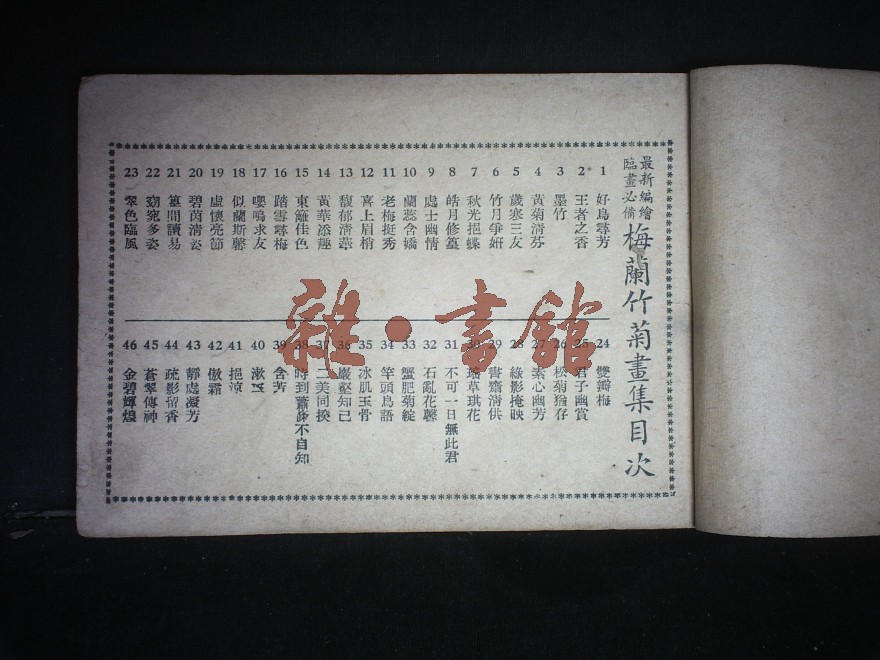 最新編繪
臨畫必備
梅蘭竹菊畫集目次
1 好鳥尋芳
2 王者之香
3 墨竹
4 黃菊清芬
5 歲寒三友
6 竹月爭妍
7 秋光挹蝶
8 皓月修篁
9 處士幽情
10 蘭蕊含嬌
11 老梅挺秀
12 喜上眉梢
13 馥郁清華
14 黃華添趣
15 東籬佳色
16 踏雪尋梅
17 嚶鳴求友
18 似蘭斯馨
19 虛懷亮節
20 碧茵清姿
21 篁間讀易
22 窈窕多姿
23 翠色臨風
24 雙瓣梅
25 君子幽賞
26 松菊猶存
27 素心幽芳
28 綠影掩映
29 書齋清供
30 瑤草琪花
31 不可一日無此君
32 石亂花馨
33 蟹肥菊綻
34 竿頭鳥語
35 冰肌玉骨
36 巖壑知己
37 二美同揆
38 時到蕭疎不自知
39 含芳
40 漱玉
41 挹涼
42 傲霜
43 靜處凝芳
44 疏影留香
45 蒼翠傳神
46 金碧輝煌
雜·書館